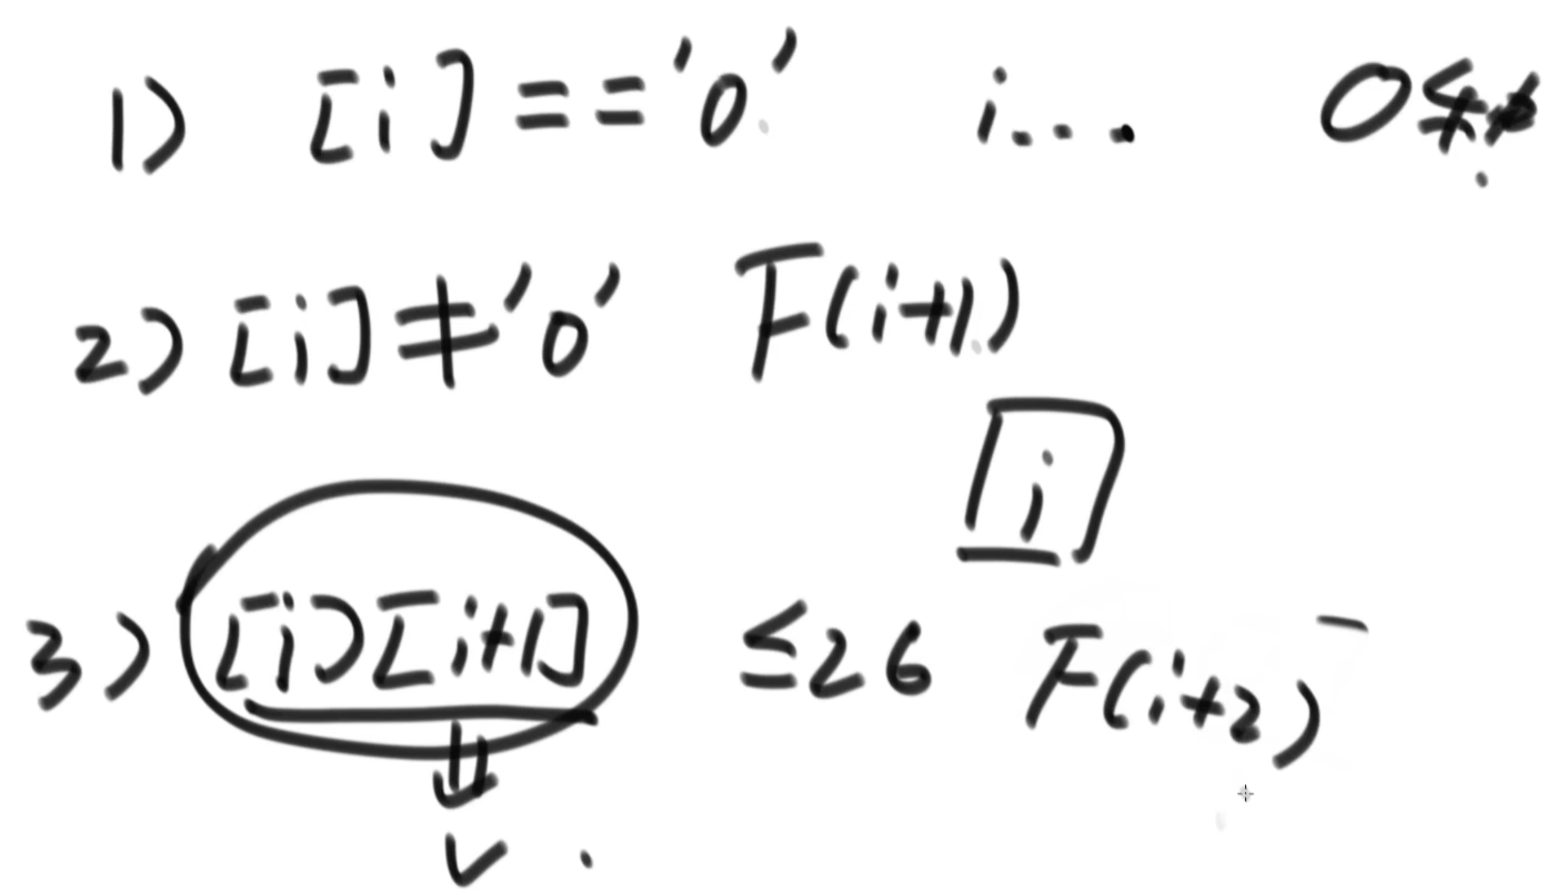 1) [i]=='0' i... 0≤
2) [i]≠'0' F(i+1)
i
3) [i][i+1] ≤26 F(i+2)